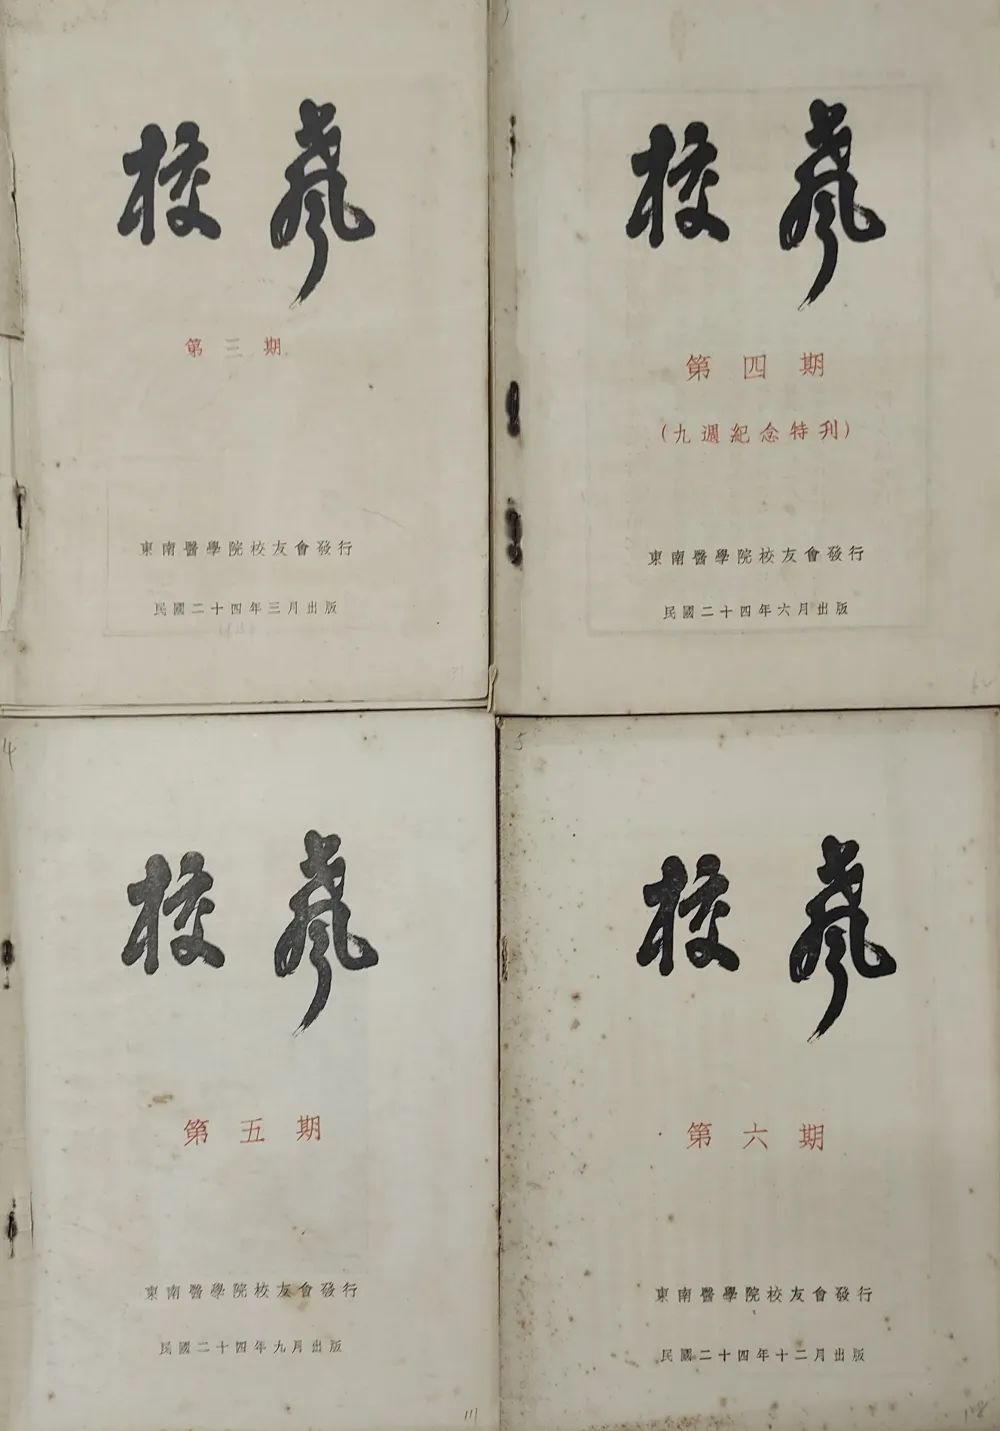 校
第三期
東南醫學院校友會發行
民國二十四年三月出版
校
第四期
(九週紀念特刊)
東南醫學院校友會發行
民國二十四年六月出版
4
校
第五期
東南醫學院校友會發行
民國二十四年九月出版
111
5
校
第六期
東南醫學院校友會發行
民國二十四年十二月出版